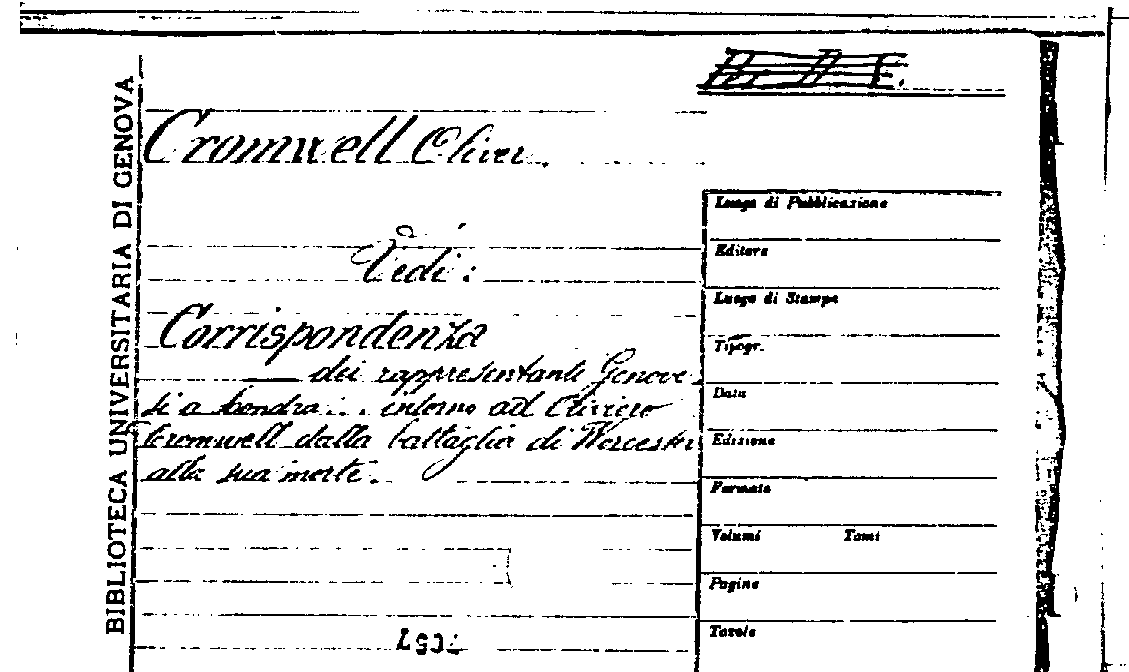 BIBLIOTECA UNIVERSITARIA DI GENOVA
Cromwell Oliver.
Vedi:
Corrispondenza
dei rappresentanti Genove-
si a Londra... intorno ad Oliviero
Cromwell dalla battaglia di Worcester
alla sua morte.
Luogo di Pubblicazione
Editore
Luogo di Stampa
Tipogr.
Data
Edizione
Formato
Volumi Tomi
Pagine
Tavole